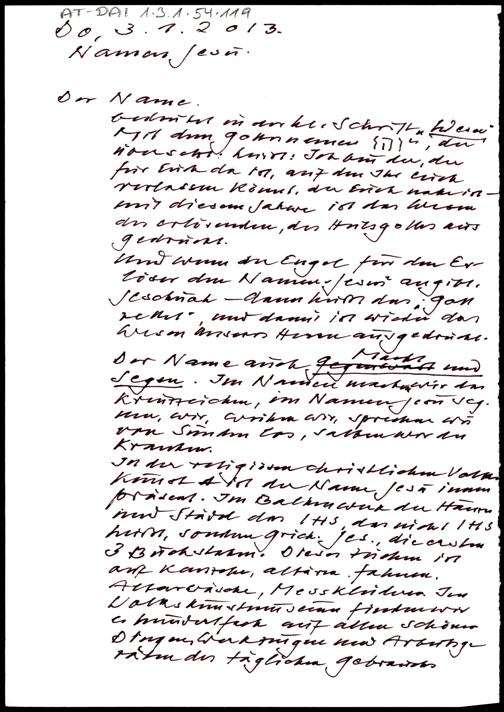 AT-DAI 1.3.1.54.119
Do, 3.1.2013.
Namen Jesu.
Der Name.
bedeutet in der hl. Schrift "Wesen"
Mit dem Gottesnamen " ", der
übersetzt heißt: Ich bin der, der
für Euch da ist, auf den Ihr Euch
verlassen könnt, der Euch nahe ist –
mit diesem Jahwe ist das Wesen
des erlösenden, des Heilsgottes aus
gedrückt.
Und wenn der Engel für den Er
löser den Namen Jesus angibt.
Jeschuah – dann heißt das, "Gott
rettet", und damit ist wieder das
Wesen unseres Herrn ausgedrückt.
Der Name auch Macht und
Segen. Im Namen machen wir das
Kreuzzeichen, im Namen Jesu seg
nen, wir, weihen wir, sprechen wir
von Sünden los, salben wir die
Kranken.
In der religiösen christlichen Volks
kunst ist der Name Jesu immer
präsent. Im Balkenwerk der Häuser
und Städel das IHS, das nicht IHS
heißt, sondern griech. Jes., die ersten
3 Buchstaben. Dieses Zeichen ist
auf Kanzeln, Altären, Fahnen,
Altarwäsche, Messkleidern Im
Volkskunstmuseum finden wir
es hundertfach auf allen schönen
Dingen, Werkzeugen und Arbeitsge
räten des täglichen Gebrauchs